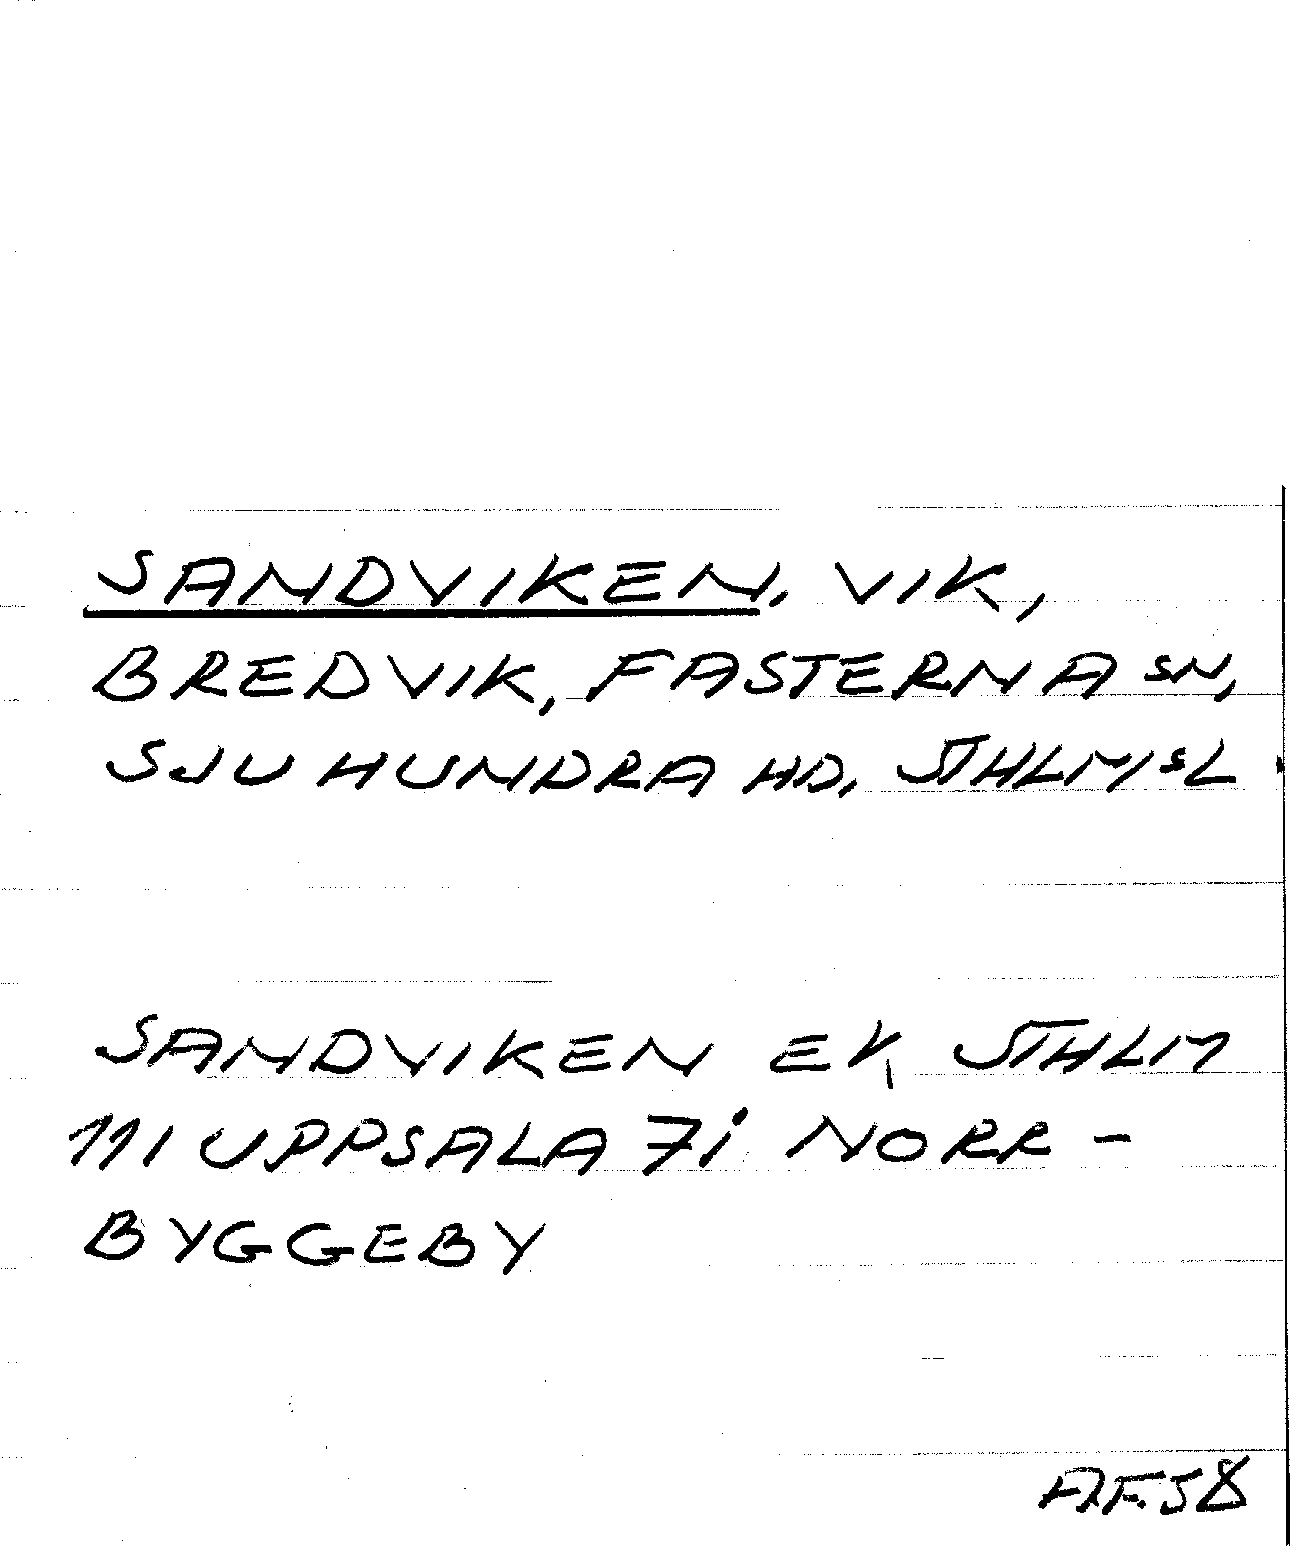 SANDVIKEN, VIK,
BREDVIK, FASTERNA SN,
SJUHUNDRA HD, STHLMSL
SANDVIKEN EK, STHLM
111 UPPSALA 7i NORR-
BYGGEBY
A.F.58